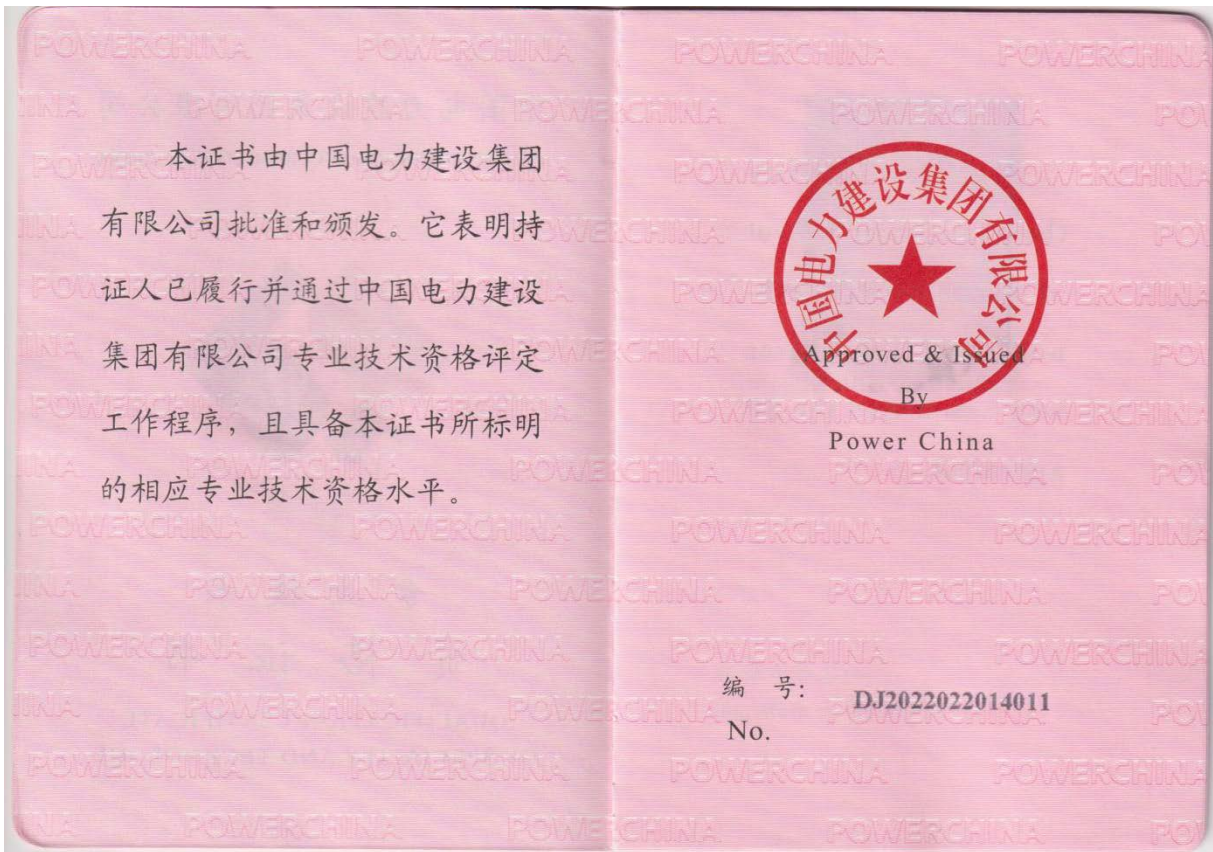 本证书由中国电力建设集团
有限公司批准和颁发。它表明持
证人已履行并通过中国电力建设
集团有限公司专业技术资格评定
工作程序，且具备本证书所标明
的相应专业技术资格水平。
中国电力建设集团有限公司
Approved & Issued
By
Power China
编 号:
DJ2022022014011
No.
POWERCHINA